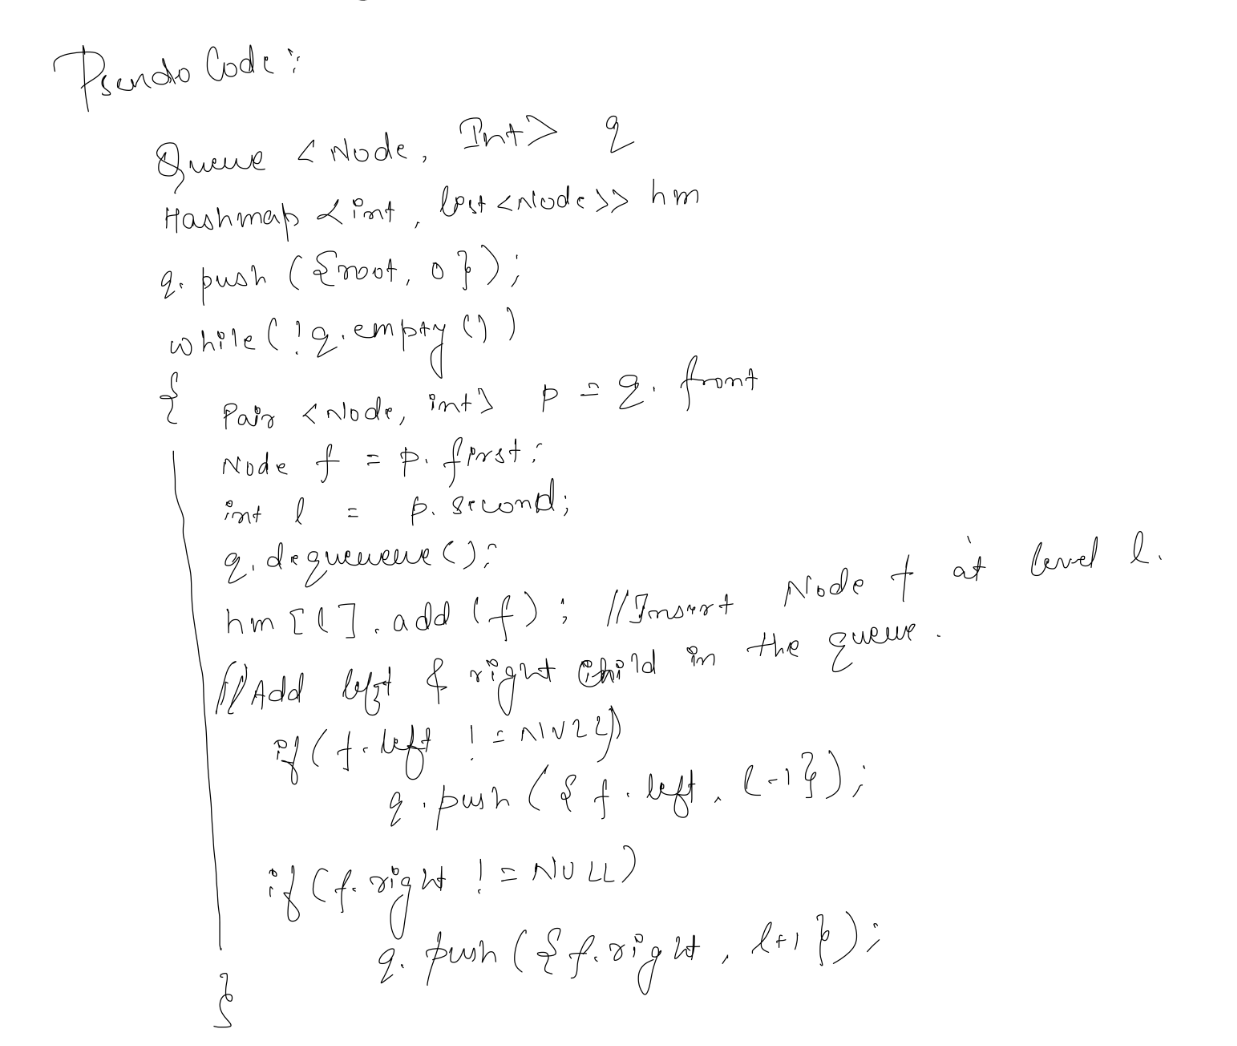 Pseudo Code :
Queue < Node, Int > q
Hashmap < int , list <Node >> hm
q. push ( {root, 0 } ) ;
while ( ! q. empty () )
{ Pair < Node, int> p = q. front
Node f = p. first ;
int l = p. second;
q. dequeueue ( ) ;
hm [ l ] . add ( f ) ; // Insert Node f at level l.
// Add left & right child in the queue .
if ( f. left ! = NULL)
q . push ( { f . left , l -1 } ) ;
if ( f. right ! = NULL )
q. push ( { f. right , l+1 } ) ;
}